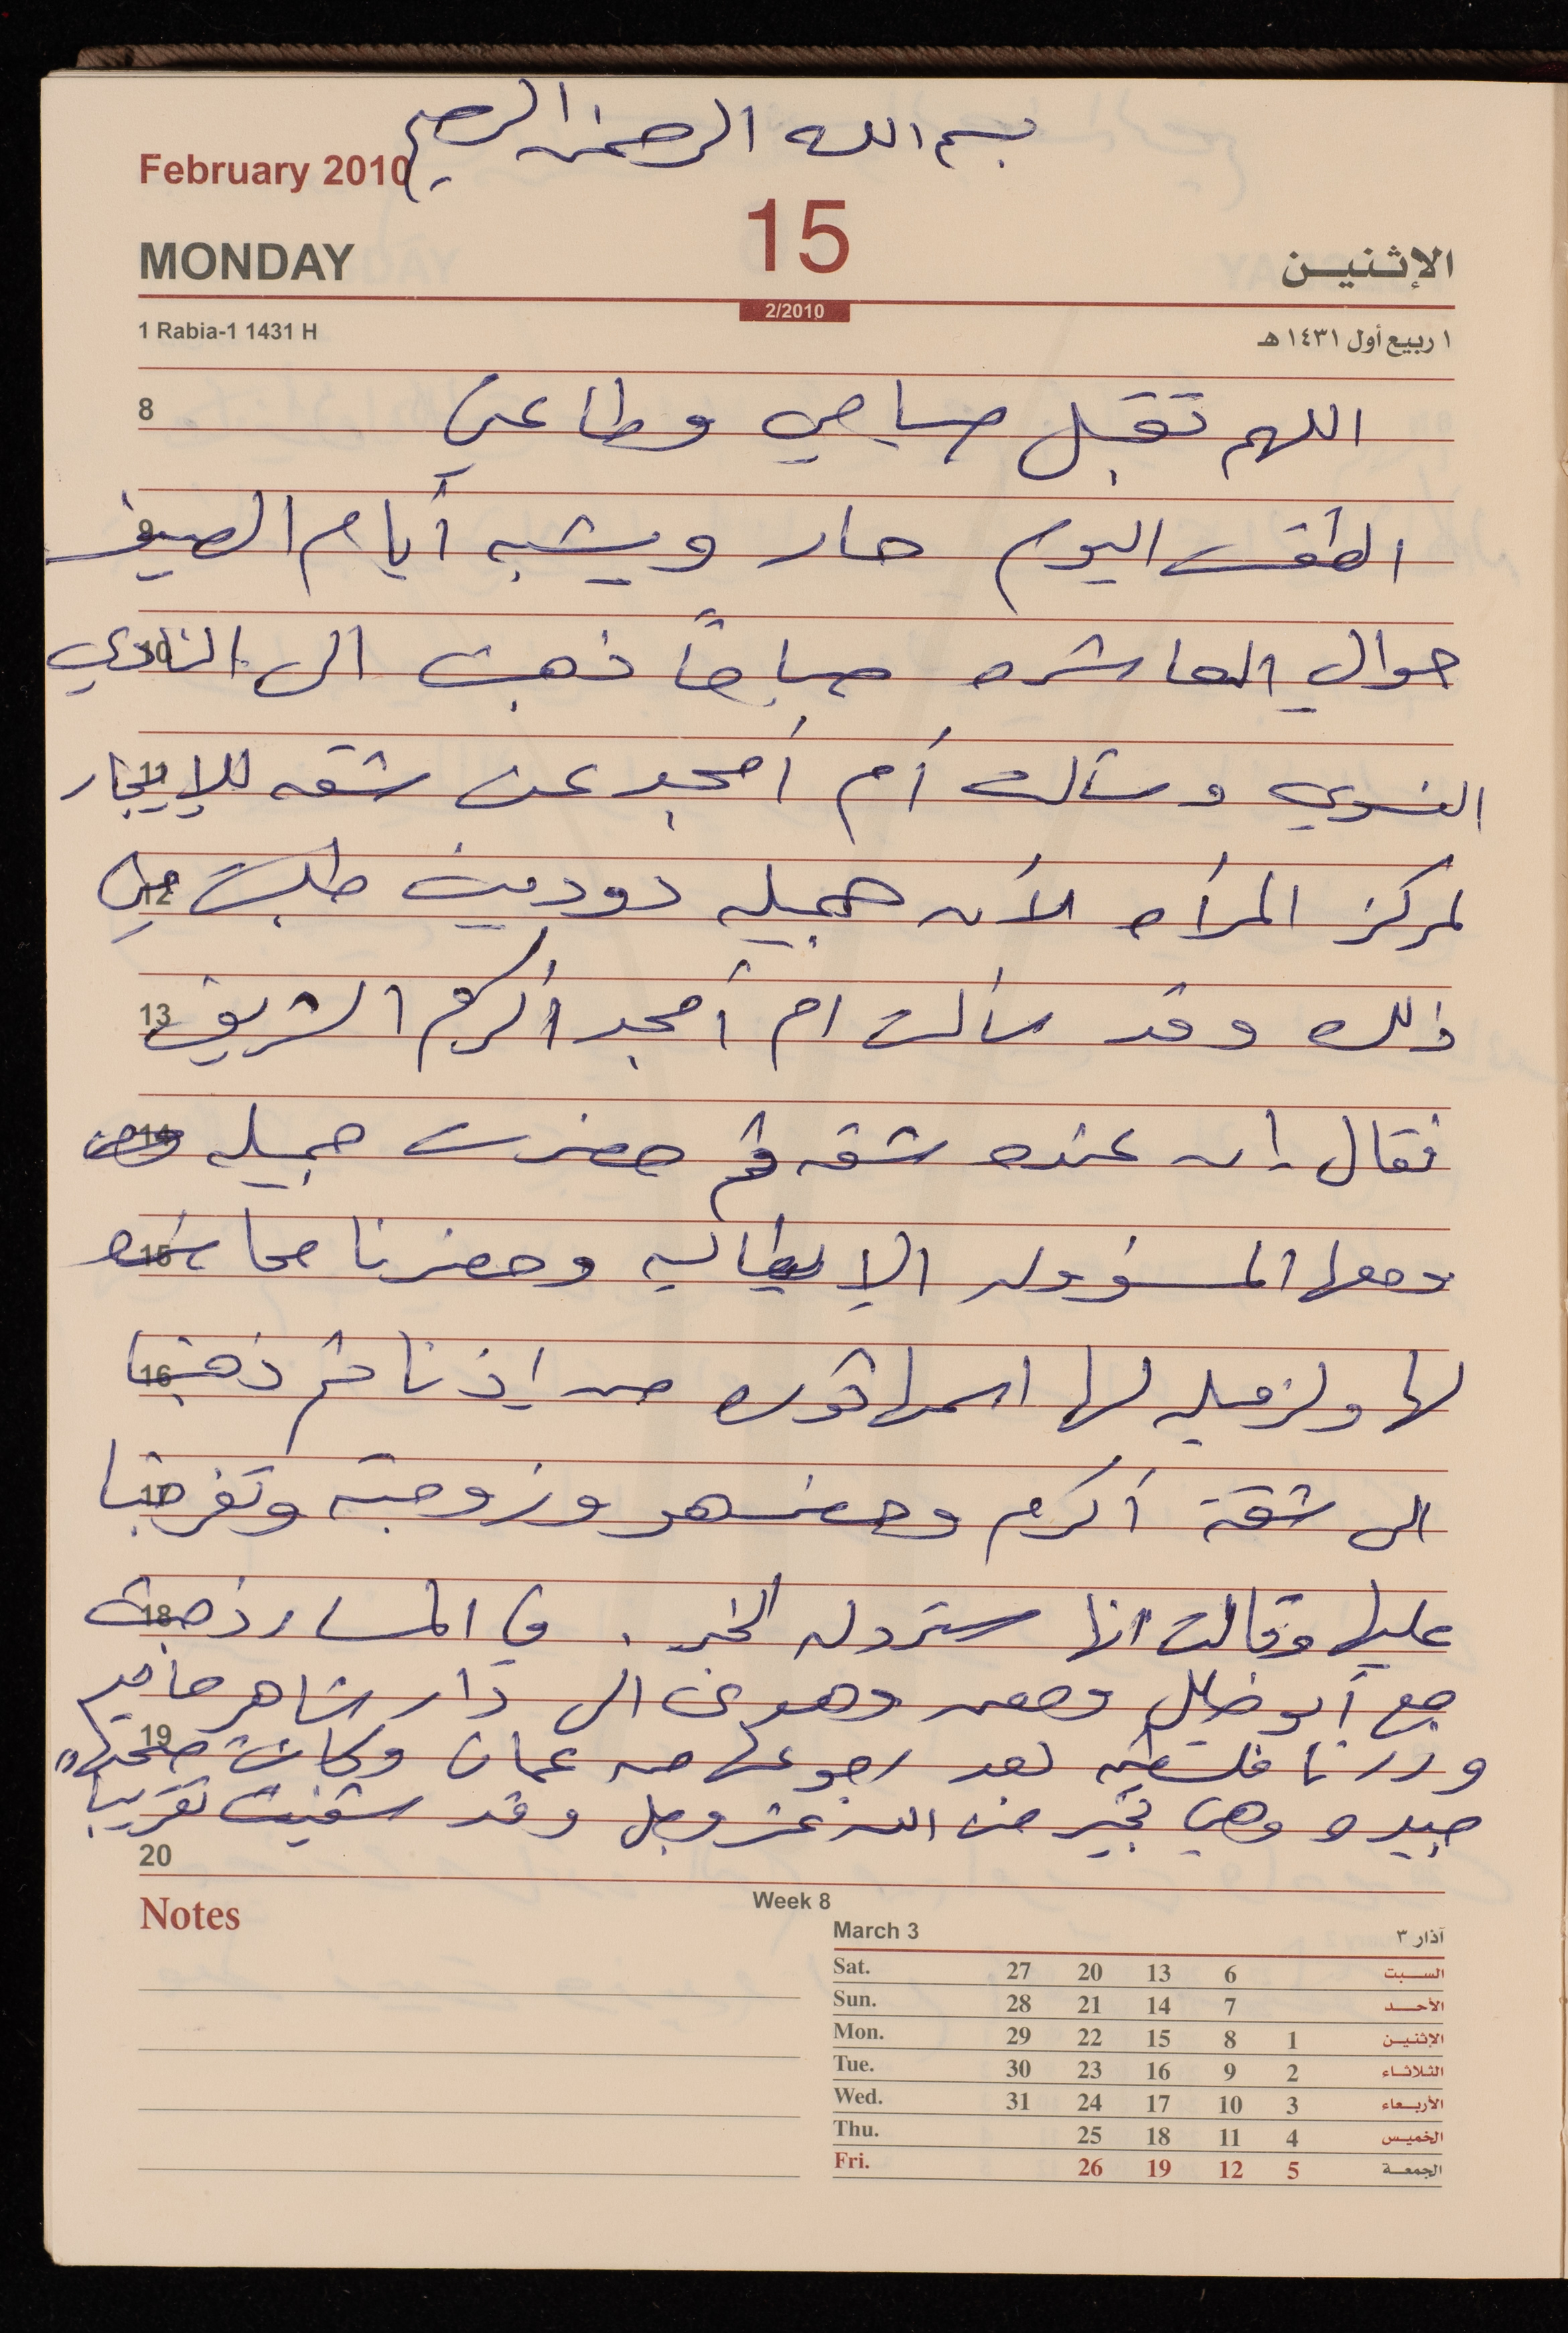 بسم الله الرحمن الرحيم
February 2010
15
MONDAY
الإثنين
2/2010
1 Rabia-1 1431 H
١ ربيع أول ١٤٣١ هـ
8
اللهم تقبل صيامي وطاعتي
9
الطقس اليوم حار ويشبه أيام الصيف
10
حوالي العاشره صباحاً ذهبت الى النادي
11
النسوي وسألت أم أمجد عن شقه للإيجار
12
لمركز المرأه لأن جميله دودين طلبت مني
13
ذلك وقد سألت ام أمجد أكرم الشريف
14
فقال إن عنده شقه ثم حضرت جميله
15
ومعها المسؤوله الإيطاليه وحضرنا محاضره
16
لها ولزميله لها اسمها من إذنا ثم ذهبنا
17
الى شقة أكرم وحضر هو وزوجته وتفرجنا
18
عليها وقالت انها سترد له الخبر. في المساء ذهبت
مع أبو ومعه وهدى الى دار شاهر
19
وزرنا فلسطين بعد رجوعها من عمان وكانت صحتها
جيده وهي بخير من الله عز وجل وقد شفيت تقريباً
20
Notes
Week 8
March 3
آذار ٣
Sat. 27 20 13 6 السبت
Sun. 28 21 14 7 الأحد
Mon. 29 22 15 8 1 الإثنين
Tue. 30 23 16 9 2 الثلاثاء
Wed. 31 24 17 10 3 الأربعاء
Thu. 25 18 11 4 الخميس
Fri. 26 19 12 5 الجمعة